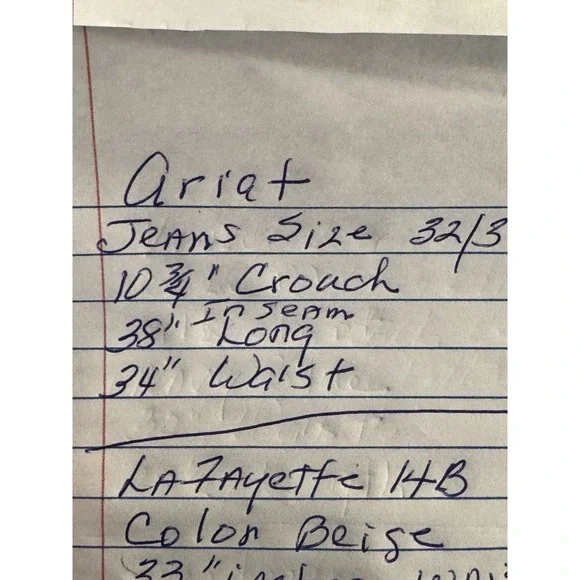 Ariat
Jeans Size 32/3
10 3/4" Crouch
InSeam
38" Long
34" Waist
LAFAyette 14B
Color Beige
33 "inches